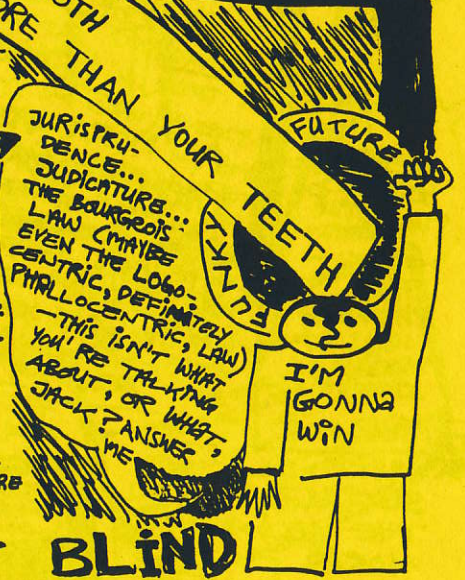 OTH
ORE THAN YOUR TEETH
FUNKY FUTURE
JURiSPRU-
DENCE...
JUDICATURE...
THE BOURGROIS
LAW (MAYBE
EVEN THE LOGO-
CENTRIC, DEFINATELY
PHALLOCENTRIC, LAW)
—THIS iSN'T WHAT
YOU'RE TALKING
ABOUT, OR WHAT,
JACK? ANSWER
ME
I'M
GONNa
WiN
RE
BLiND